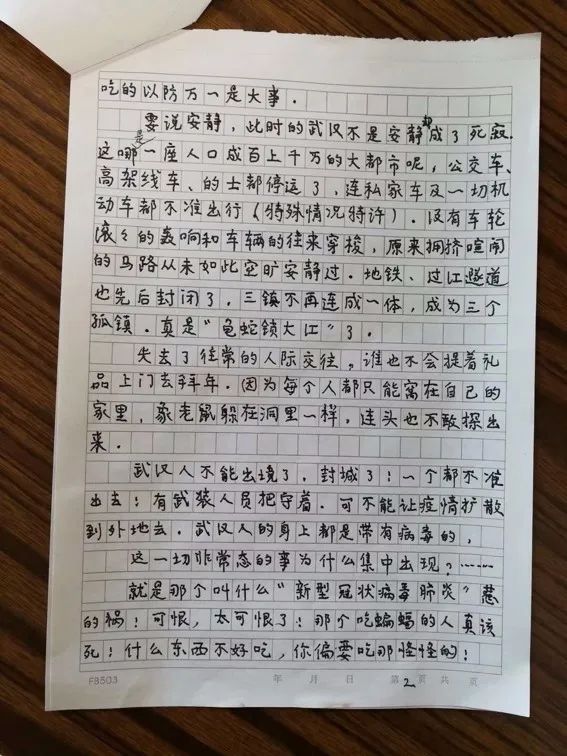 吃的以防万一是大事.
要说安静,此时的武汉不是安静却成了死寂.
这哪是一座人口成百上千万的大都市呢,公交车、
高架线车、的士都停运了,连私家车及一切机
动车都不准出行(特殊情况特许).没有车轮
滚々的轰响和车辆的往来穿梭,原来拥挤喧闹
的马路从未如此空旷安静过.地铁、过江隧道
也先后封闭了.三镇不再连成一体,成为三个
孤镇.真是“龟蛇锁大江”了.
失去了往常的人际交往,谁也不会提着礼
品上门去拜年.因为每个人都只能窝在自己的
家里,象老鼠躲在洞里一样,连头也不敢探出
来.
武汉人不能出境了.封城了!一个都不准
出去!有武装人员把守着.可不能让疫情扩散
到外地去.武汉人的身上都是带有病毒的,
这一切非常态的事为什么集中出现?……
就是那个叫什么“新型冠状病毒肺炎”惹
的祸!可恨,太可恨了!那个吃蝙蝠的人真该
死!什么东西不好吃,你偏要吃那怪怪的!
FB503 年 月 日 第2页共 页